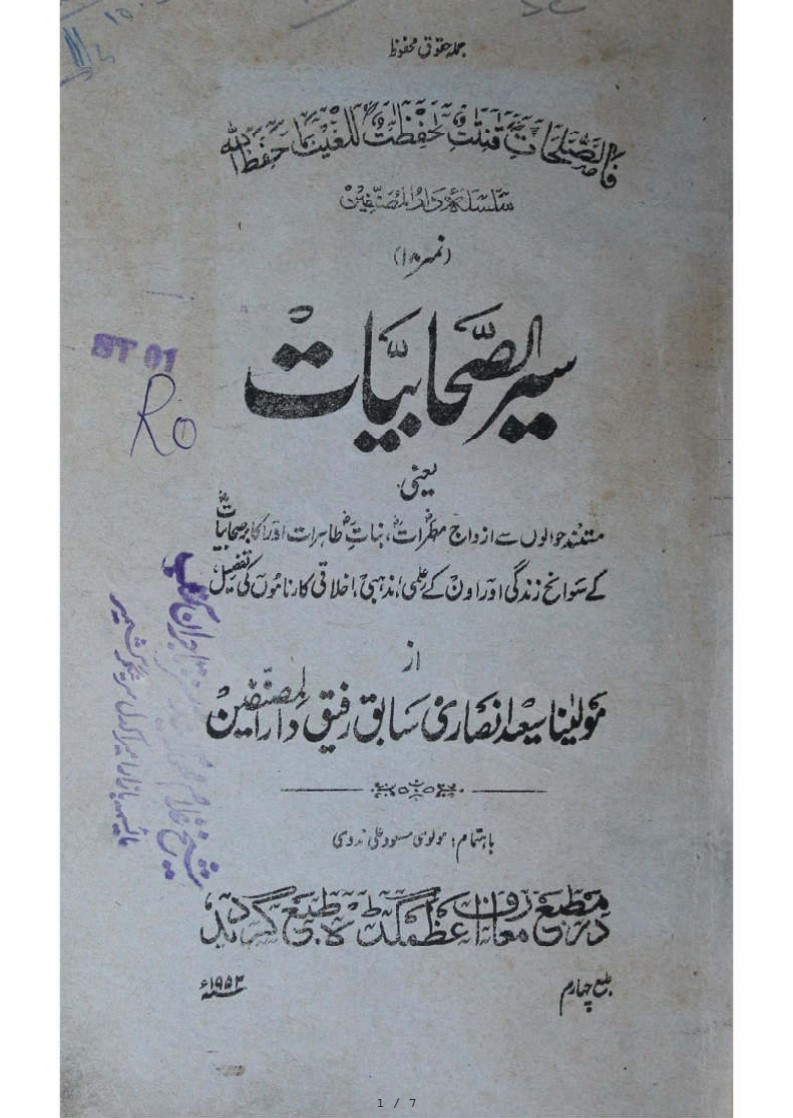 جملہ حقوق محفوظ
فَالصّٰلِحٰتُ قٰنِتٰتٌ حٰفِظٰتٌ لِّلْغَیْبِ بِمَا حَفِظَ اللّٰہُ
سلسلۂ دار المصنفین
(نمبر ۱۸)
سیر الصحابیات
یعنی
مستند حوالوں سے ازواج مطہراتؓ، بناتِ طاہراتؓ اور اکابر صحابیاتؓ
کے سوانح زندگی اور اون کے علمی، مذہبی، اخلاقی کارناموں کی تفصیل
از
مولینا سعید انصاری سابق رفیق دار المصنفین
باہتمام: مولوی مسعود علی ندوی
در مطبع معارف اعظم گڈھ طبع گردید
طبع چہارم
۱۹۵۲ء
BT 01
Ro
شیخ غلام محمد تاجران کتب
مائسمہ بازار امیراکدل سرینگر کشمیر
1 / 7